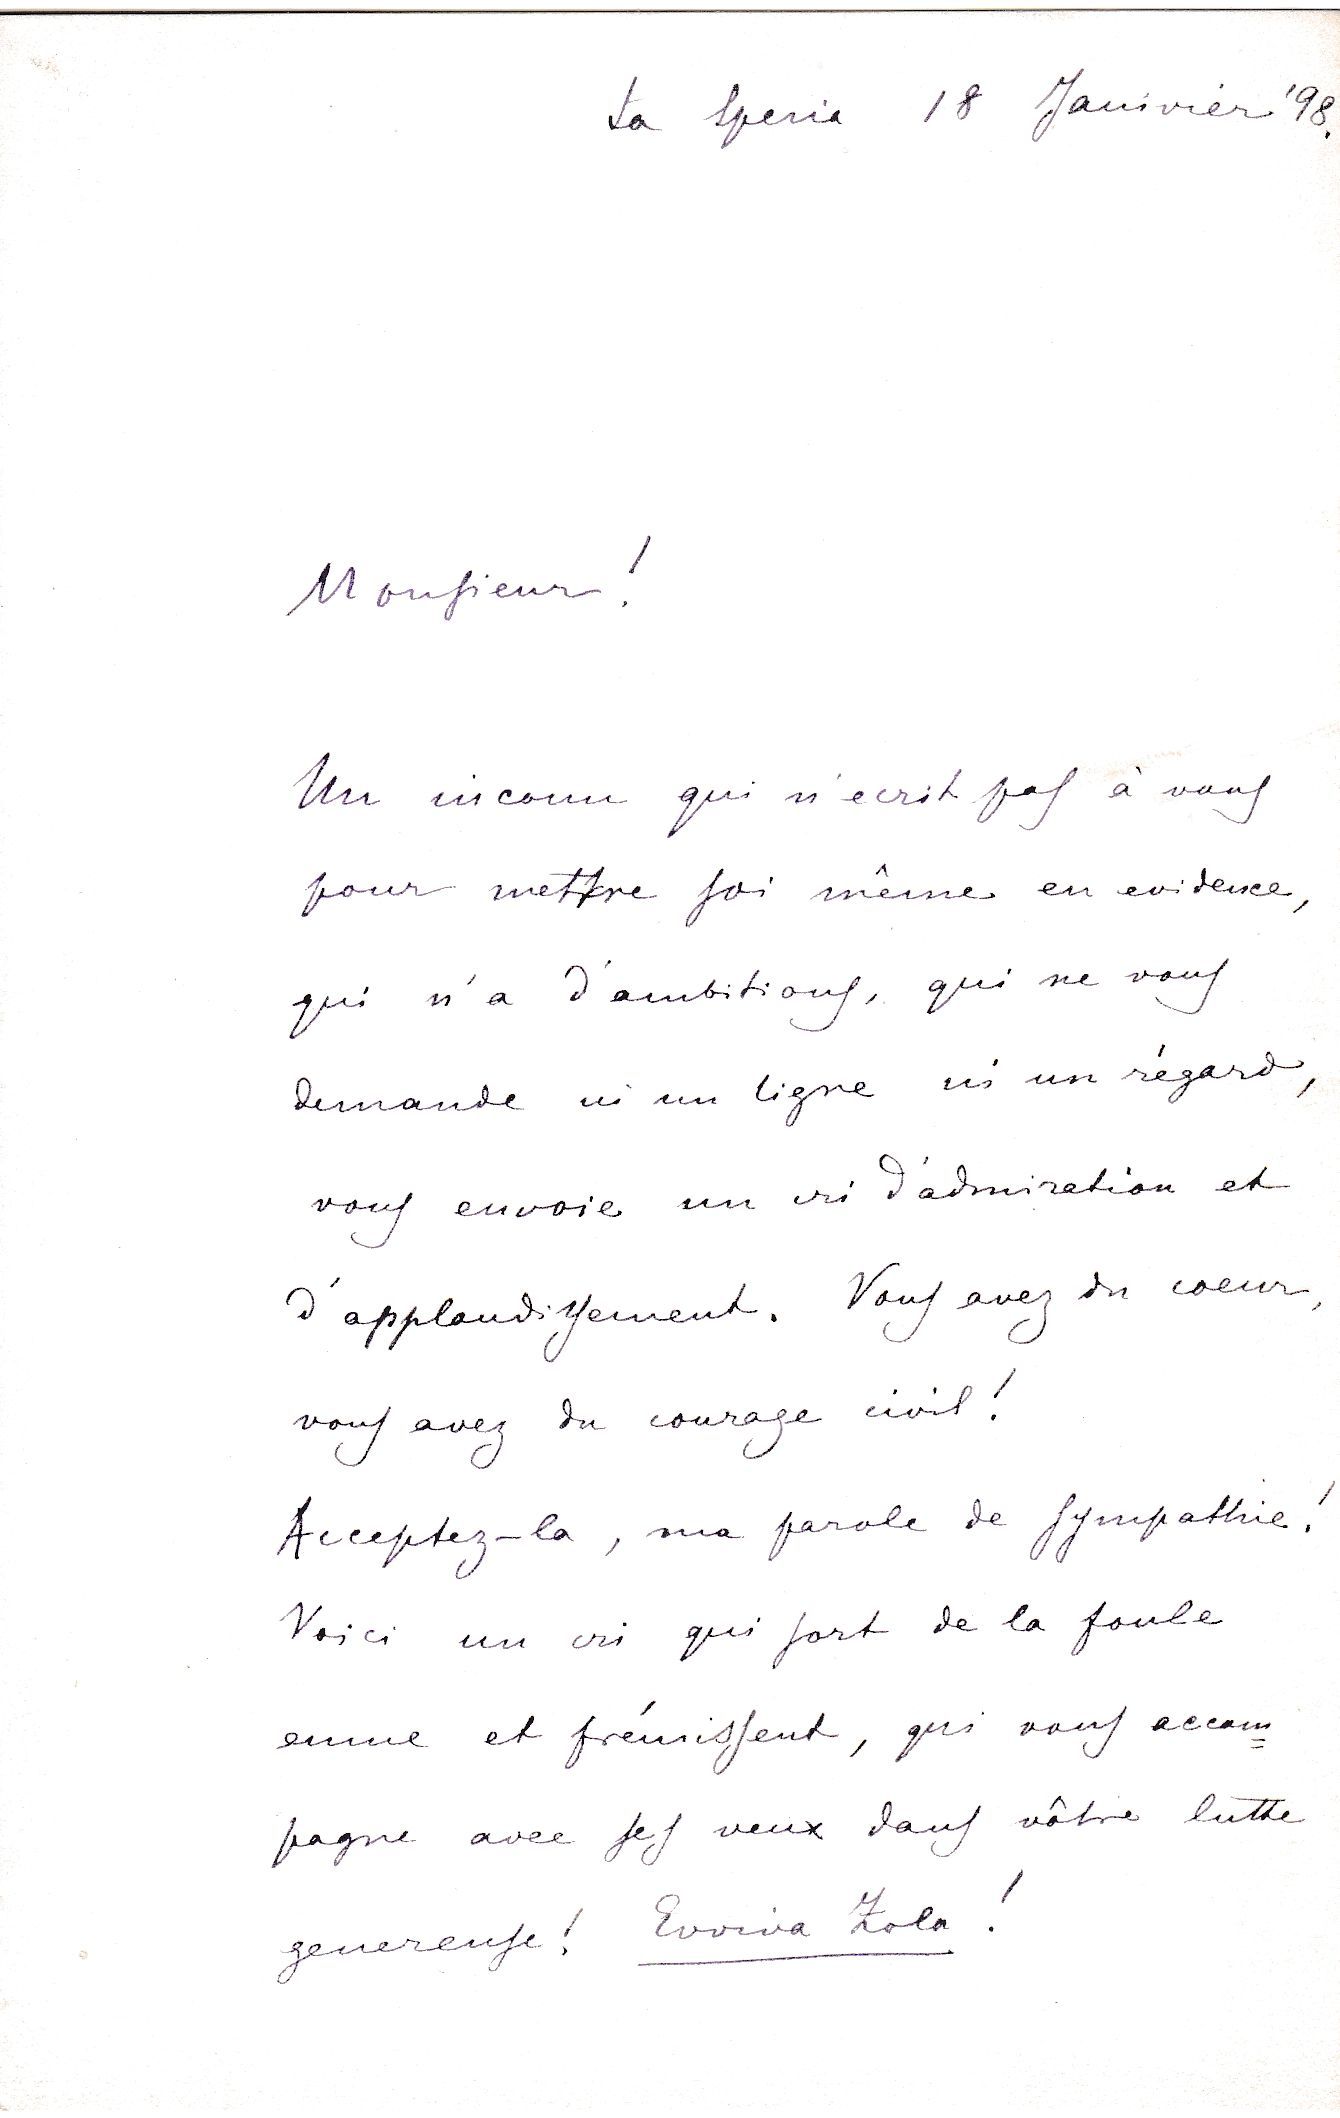 La Spezia 18 Janivier '98.
Monsieur!
Un inconu qui n'ecrit pas à vous
pour mettre soi même en evidence,
qui n'a d'ambitions, qui ne vous
demande ni un ligne ni un régard,
vous envoie un cri d'admiration et
d'applaudissement. Vous avez du coeur,
vous avez du courage civil!
Acceptez-la, ma parole de sympathie!
Voici un cri qui sort de la foule
emue et frémissent, qui vous accom=
pagne avec ses veux dans vôtre lutte
genereuse! Evviva Zola!